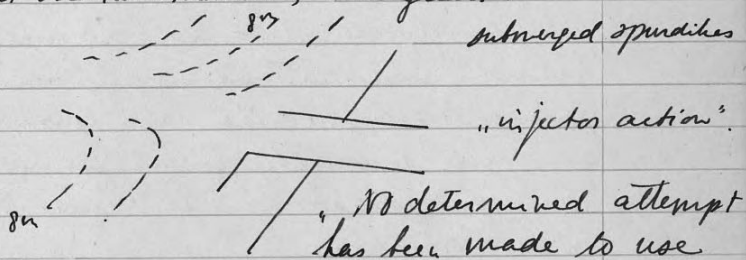 8m
submerged spurdikes
„injector action".
8m
„No determined attempt
has been made to use